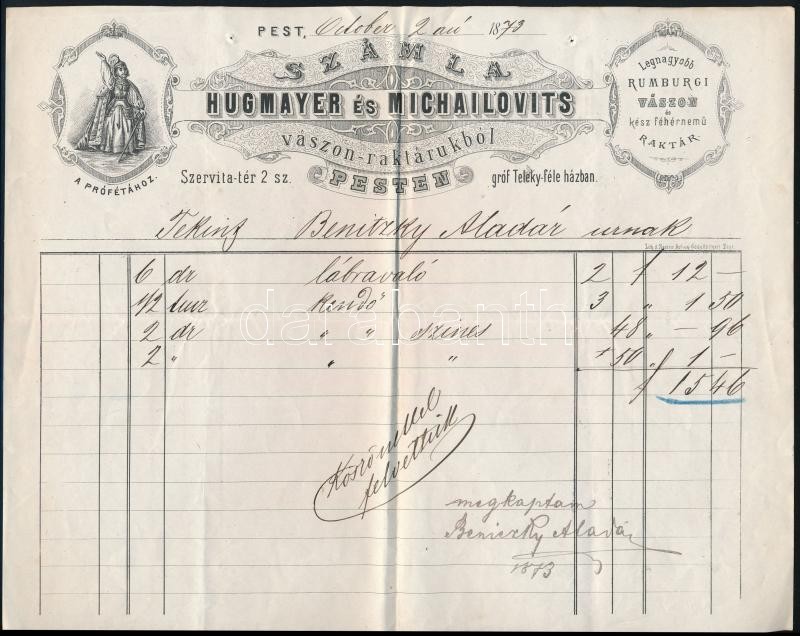 PEST, October 2 án 1873
SZÁMLA
HUGMAYER ÉS MICHAILOVITS
vászon-raktárukból
PESTEN
Szervita-tér 2 sz.
gróf Teleky-féle házban.
A PRÓFÉTÁHOZ.
Legnagyobb
RUMBURGI
VÁSZON
és
kész féhérnemű
RAKTÁR
Benitzky Aladár urnak
6 dr lábravaló 2 f 12 —
1/2 tuc kendő 3 " 1 50
2 dr " " szines 48 " — 96
2 " " " 50 " 1 —
f 15 46
Köszönettel
felvettük
megkaptam
Beniczky Aladár
1873
darabanth